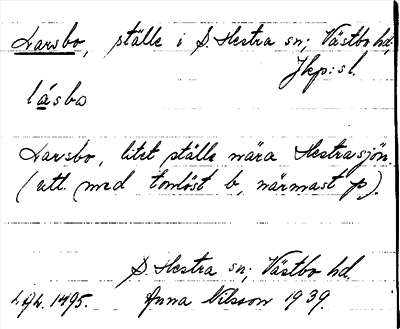 Larsbo, ställe i S. Hestra sn; Västbo hd,
Jkp:s l.
lásbo
Larsbo, litet ställe nära Hestrasjön.
(utt. med tonlöst b, närmast p).
S. Hestra sn; Västbo hd.
1495. Anna Nilsson 1939.